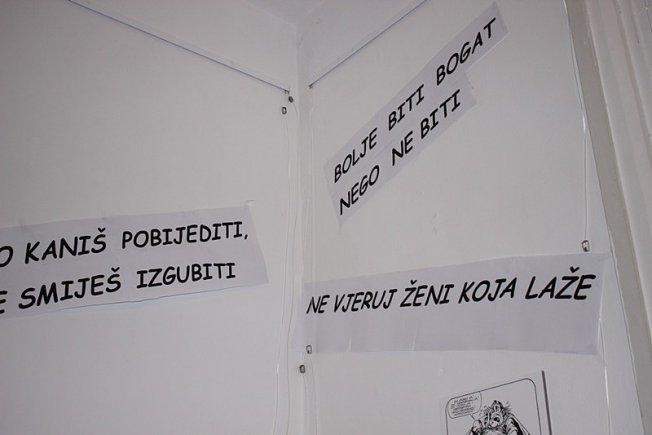 O KANIŠ POBIJEDITI,
E SMIJEŠ IZGUBITI
BOLJE BITI BOGAT
NEGO NE BITI
NE VJERUJ ŽENI KOJA LAŽE